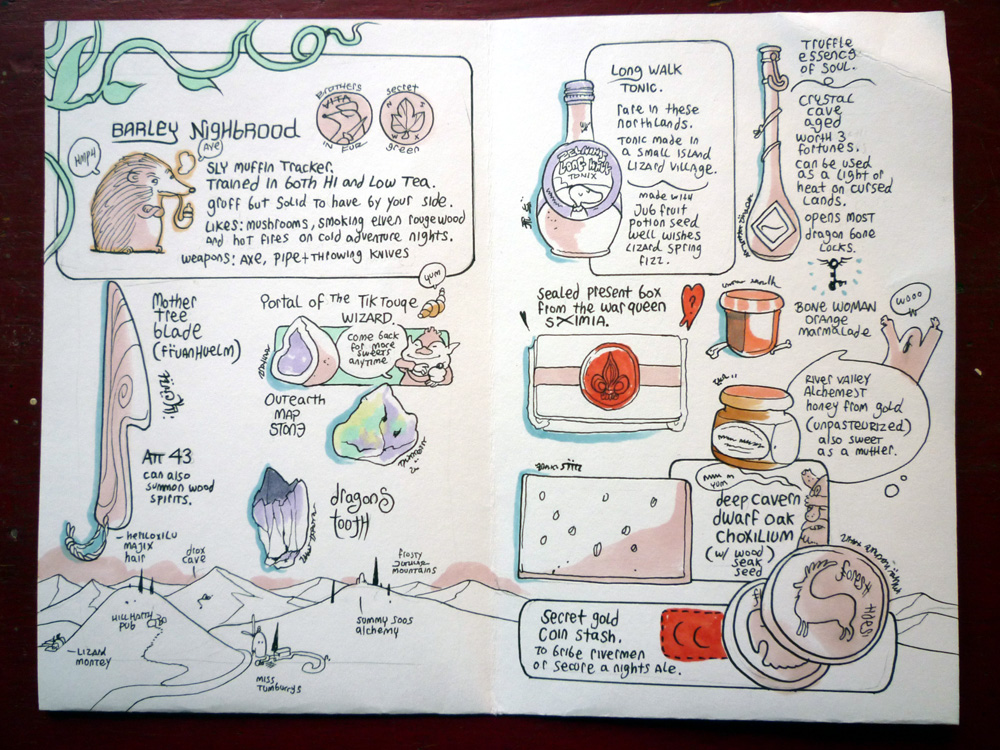 BARLEY Nighbrood
BROTHERS
VITA
IN FUR
secret
N S
green
HMPH
AYE
SLY MUFFIN TRACKER.
Trained in both HI and Low Tea.
gruff but Solid to have by your side.
Likes: mushrooms, smoking elven rougewood
and hot fires on cold adventure nights.
weapons: AXE, PIPE + THROWING KNIVES
Mother
Tree
blade
(FïUANHUELM)
ATT 43
can also
summon wood
spirits.
HELLOXILU
MAJIX
hair
Portal of The TikTouge
WIZARD.
YUM
come back
for more
sweets
anytime
Outearth
MAP
STONE
dragons
tooth
drox
cave
frosty
mountains
HILL HARTH
PUB
LIZARD
MONTEY
MISS
TUMBURRYS
summy soos
alchemy
LONG WALK
TONIC.
rare in these
northlands.
TONIC made in
a small island
Lizard Village.
made with
Jub fruit
Potion seed
well wishes
Lizard spring
fizz.
LONG WALK
TONIX
TRUFFLE
essence
OF SOUL.
CRYSTAL
cave
aged
worth 3
fortunes.
can be used
as a light or
heat on cursed
Lands.
opens most
dragon bone
Locks.
Sealed present box
from the war queen
SXIMIA.
?
BONE WOMAN
Orange
marmalade.
WOOO
River Valley
Alchemest
honey from gold
(unpasteurized)
also sweet
as a mother.
mum n
yum
deep cavern
dwarf oak
CHOXILIUM
(w/ wood
seak
seed)
Secret gold
Coin stash.
To bribe rivermen
or secure a nights Ale.
CC
forest